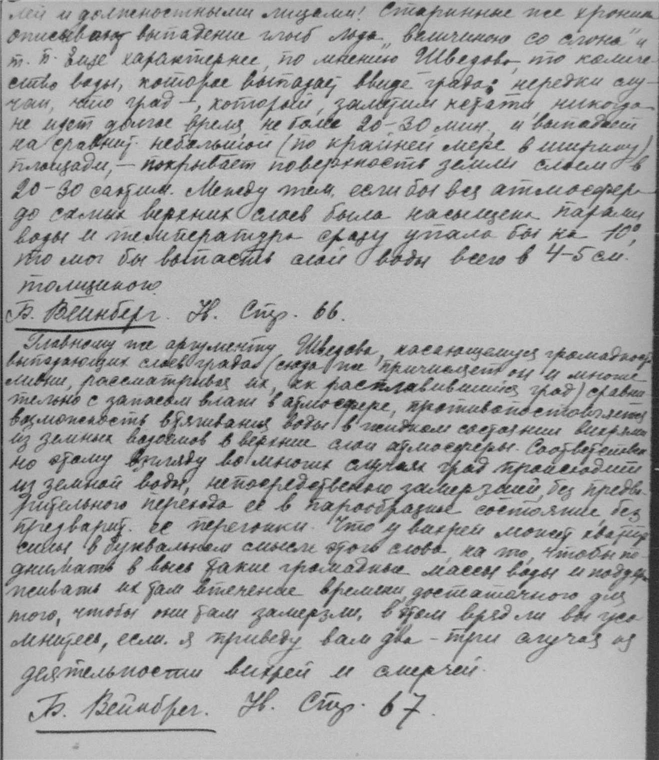 лей и должностными лицами! Старинные же хроники
описывают выпадение глыб льда величиною со слона" и
т. п. Еще характернее, по мнению Шведова, то количе-
ство воды, которое выпадает ввиде града: нередки слу-
чаи, что град -, который, заметим кстати никогда
не идет долгое время, не более 20-30 мин. и выпадает
на сравнит. небольшой (по крайней мере в ширину)
площади, - покрывает поверхность земли слоем в
20-30 сантим. Между тем, если бы вся атмосфера
до самых верхних слоев была насыщена парами
воды и температура сразу упала бы на 10°,
то мог бы выпасть слой воды всего в 4-5 см.
толщиною.
Б. Вейнберг. Н. Стр. 66.
Главному же аргументу Шведова, касающемуся громадности
выпадающих слоев града (сюда же причисляет он и многие
ливни, рассматривая их, как расплавившийся град) сравни
тельно с запасом влаги в атмосфере, противопоставляется
возможность втягивания воды в жидком состоянии вихрями
из земных водоемов в верхние слои атмосферы. Соответствен
но этому взгляду во многих случаях град происходит
из земной воды, непосредственно замерзшей, без предва-
рительного перехода ее в парообразное состояние, без
предварит. ее перегонки. Что у вихрей может хватить
силы в буквальном смысле этого слова, на то, чтобы по-
днимать в высь такие громадные массы воды и поддер
живать их там втечение времени, достаточного для
того, чтобы они там замерзли, в этом вряд ли вы усо
мнитесь, если я приведу вам два - три случая из
деятельности вихрей и смерчей.
Б. Вейнберг. Н. Стр. 67.